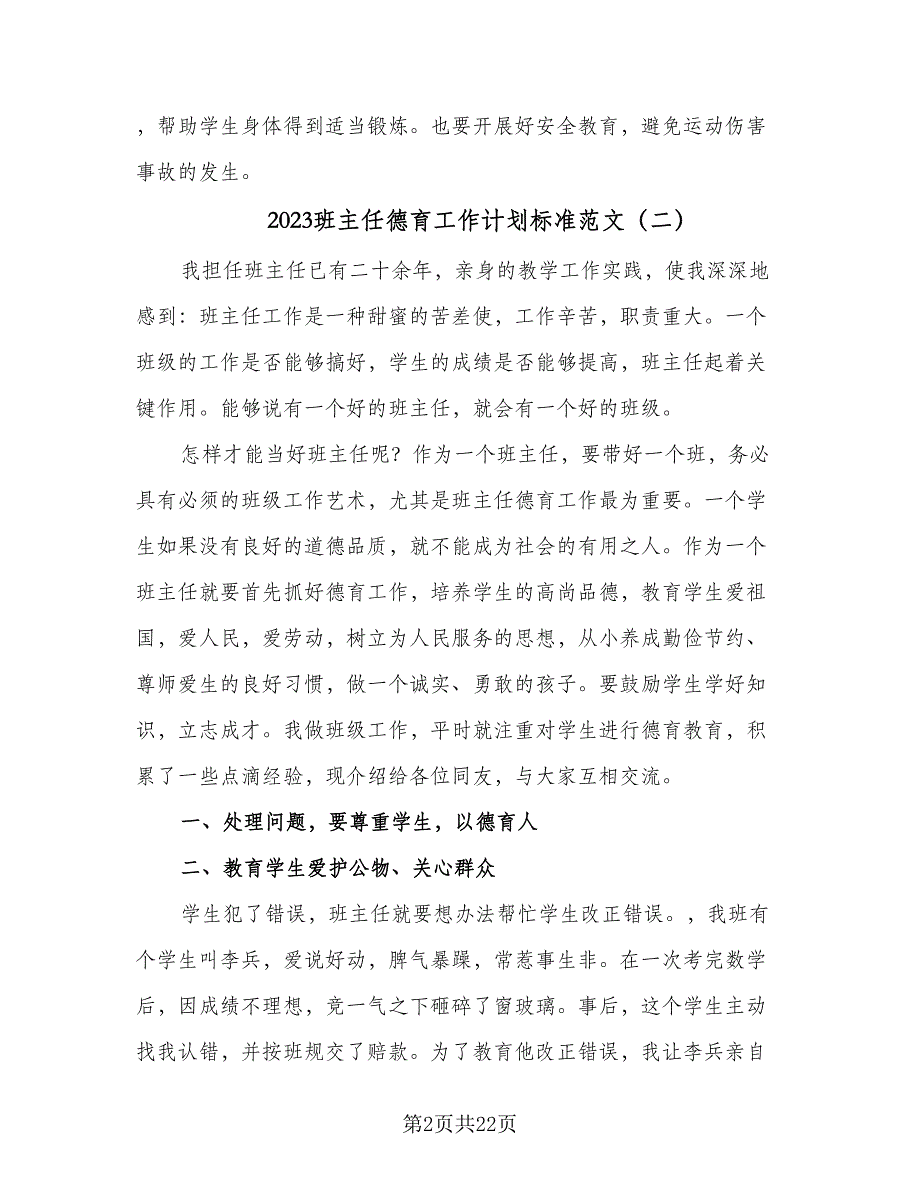 ，帮助学生身体得到适当锻炼。也要开展好安全教育，避免运动伤害
事故的发生。
2023班主任德育工作计划标准范文（二）
我担任班主任已有二十余年，亲身的教学工作实践，使我深深地
感到：班主任工作是一种甜蜜的苦差使，工作辛苦，职责重大。一个
班级的工作是否能够搞好，学生的成绩是否能够提高，班主任起着关
键作用。能够说有一个好的班主任，就会有一个好的班级。
怎样才能当好班主任呢？作为一个班主任，要带好一个班，务必
具有必须的班级工作艺术，尤其是班主任德育工作最为重要。一个学
生如果没有良好的道德品质，就不能成为社会的有用之人。作为一个
班主任就要首先抓好德育工作，培养学生的高尚品德，教育学生爱祖
国，爱人民，爱劳动，树立为人民服务的思想，从小养成勤俭节约、
尊师爱生的良好习惯，做一个诚实、勇敢的孩子。要鼓励学生学好知
识，立志成才。我做班级工作，平时就注重对学生进行德育教育，积
累了一些点滴经验，现介绍给各位同友，与大家互相交流。
一、处理问题，要尊重学生，以德育人
二、教育学生爱护公物、关心群众
学生犯了错误，班主任就要想办法帮忙学生改正错误。，我班有
个学生叫李兵，爱说好动，脾气暴躁，常惹事生非。在一次考完数学
后，因成绩不理想，竞一气之下砸碎了窗玻璃。事后，这个学生主动
找我认错，并按班规交了赔款。为了教育他改正错误，我让李兵亲自
第2页共22页